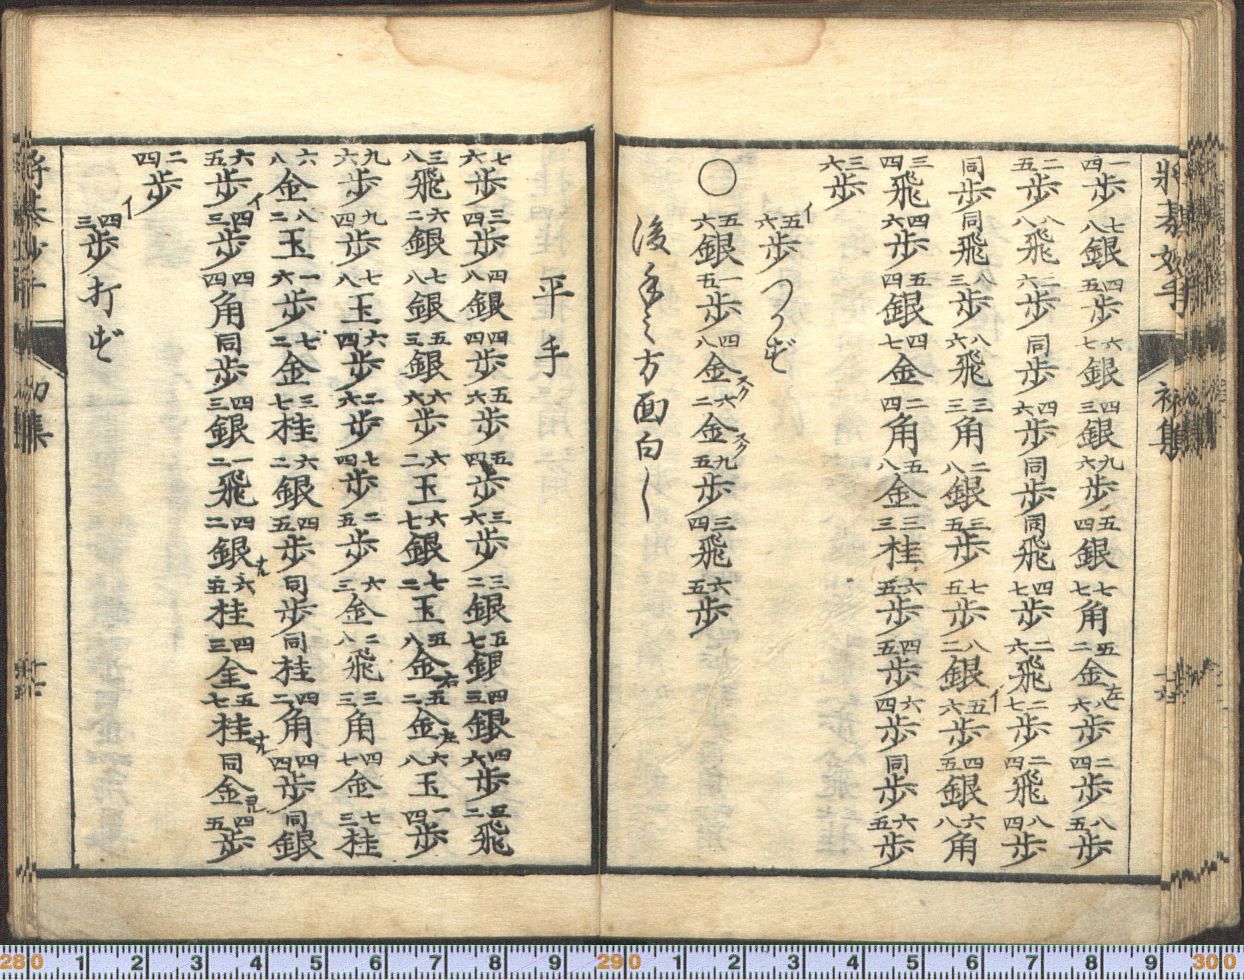 将棋妙手　初集
一四歩七八銀四五歩六七銀四三銀九六歩五四銀七七角五二金左八六歩二四歩八五歩
二五歩八八飛二六歩同歩四六歩同歩同飛四七歩二六飛二七歩二四飛八四歩
同歩同飛八三歩八六飛三三角二八銀三五歩七五歩八二銀イ五六歩四五銀六八角
三四飛四六歩五四銀四七金二四角五八金三三桂六五歩四五歩六四歩同歩六五歩
三六歩
イ五六歩つかず
○五六銀一五歩四八金六二金九五歩三四飛六五歩
後手之方面白し
平手
七六歩三四歩四八銀四四歩五六歩五四歩三六歩三二銀五七銀四三銀四六歩五二飛
三八飛六二銀七八銀五三銀六六歩六二玉六七銀七二玉五八金右五二金左六八玉一四歩
九六歩九四歩七八玉六四歩二六歩七四歩二五歩六三金二八飛三三角四七金七三桂
六八金八二玉一六歩七二金三七桂六二銀四五歩同歩同桂四二角四四歩同銀
六五歩イ四三歩四四角同歩四三銀一二飛四二銀ナル六五桂四三全五七桂ナル同金四五歩
二四歩
イ四三歩打ず
将棋妙手　初集　十七